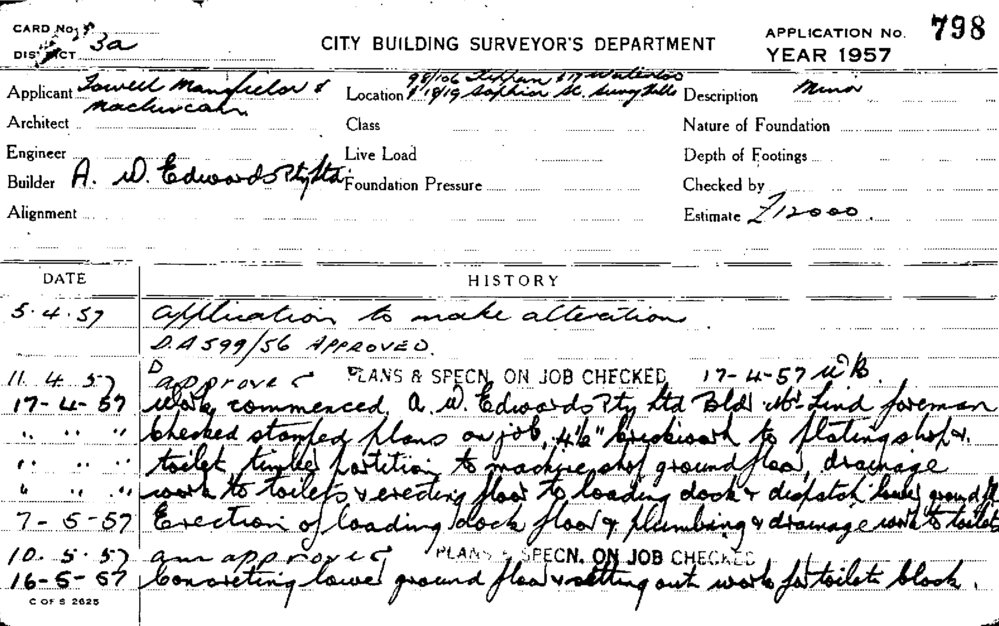 CARD No.
DISTRICT 3a
CITY BUILDING SURVEYOR'S DEPARTMENT
APPLICATION No. 798
YEAR 1957
Applicant Fowell Mansfield &
Maclurcan
Location 98/106 Kippax & 17 Waterloo
& 18/19 Sophia St. Surry Hills
Description Minor
Architect
Class
Nature of Foundation
Engineer
Live Load
Depth of Footings
Builder A. W. Edwards Pty Ltd
Foundation Pressure
Checked by
Alignment
Estimate £12000.
DATE HISTORY
5.4.57 application to make alteration
D.A 599/56 APPROVED.
11.4.57 approved PLANS & SPECN. ON JOB CHECKED 17-4-57 WB.
17-4-57 Work commenced, A. W. Edwards Pty Ltd Bldr Mr Lind foreman
" " " Checked stamped plans on job, 4½" brickwork to plating shop &
" " " toilet, timber partition to machine shop ground floor, drainage
" " " work to toilets & erecting floor to loading dock & dispatch lower ground fl
7-5-57 Erection of loading dock floor & plumbing & drainage work to toilets
10.5.57 am approved PLANS & SPECN. ON JOB CHECKED
16-5-57 Concreting lower ground floor & setting out work for toilet block.
C OF S 2625